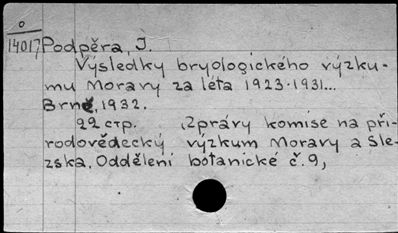 o
14017 Podpěra, J.
Výsledky bryologického výzku-
mu Moravy za léta 1923-1931...
Brně, 1932.
22 стр. ,Zprávy komise na při-
rodovědecký výzkum Moravy a Sle-
zska, Oddělení botanické č. 9,